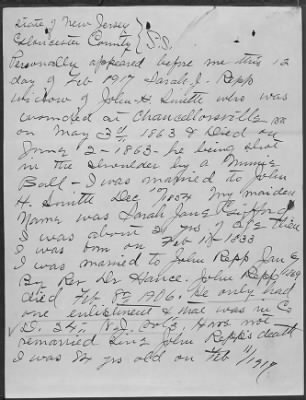 State of New Jersey }
Gloucester County } S.S.
Personally appeared before me this 12
day of Feb 1917 Sarah J. Repp
widow of John H. Smith who was
wounded at Chancellorsville
on May 3d 1863 & Died on
June 2 - 1863 - he being shot
in the shoulder by a Minnie
Ball - I was married to John
H. Smith Dec 1854 My maiden
Name was Sarah Jane
I was about 21 yrs of age then
I was born on Feb 11 1833
I was married to John Repp Jan 9
By Rev Dr Hance. John Repp
died Feb 8th 1906. He only had
one enlistment & that was in Co
G. 24th N.J. Vols, Have not
remarried since John Repp's death
I was 84 yrs old on Feb 11/1917